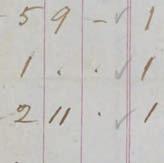 5 9 - ✓ 1
1 . . ✓ 1
2 11 . ✓ 1